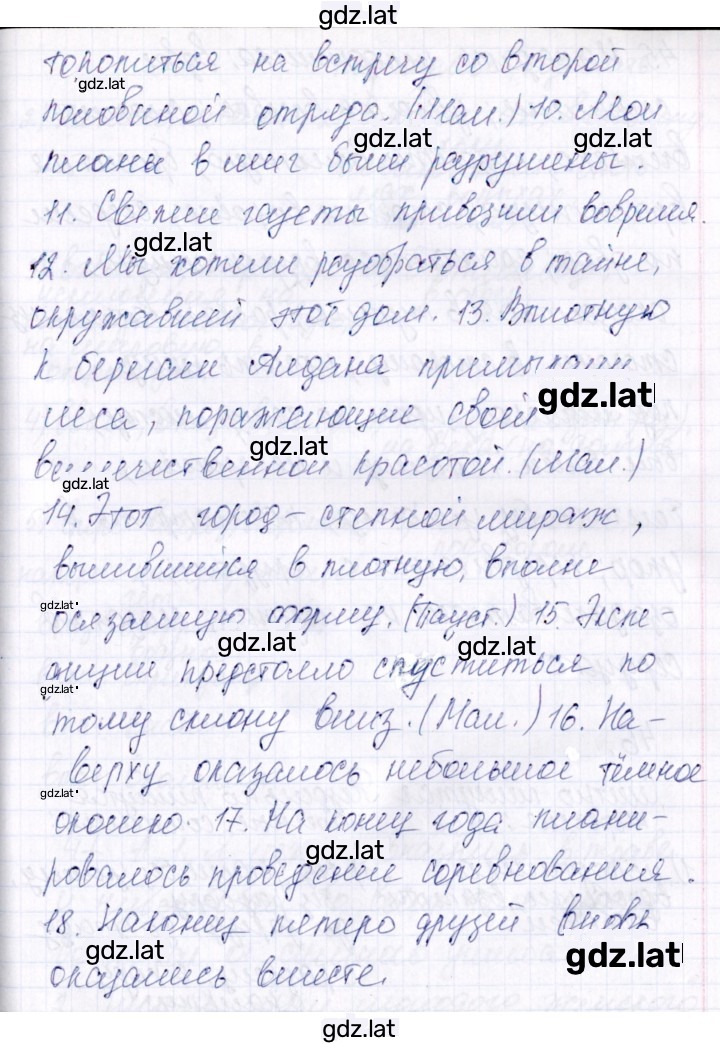 gdz.lat
топопиться на встречу со второй
gdz.lat
половиной отряда. (Мал.) 10. Мои
gdz.lat gdz.lat
планы в миг были разрушены.
11. Свежие газеты привозили вовремя.
gdz.lat
12. Мы хотели разобраться в тайне,
окружавшей этот дом. 13. Вплотную
к берегам Алдана
gdz.lat
леса, поражающие своей
gdz.lat
красотой. (Мал.)
gdz.lat
14. Этот город – степной мираж,
вылившийся в плотную, вполне
gdz.lat
осязаемую форму. (Пауст.) 15. Экспе-
gdz.lat gdz.lat
диции предстояло спуститься по
gdz.lat
тому склону вниз. (Мал.) 16. На-
верху оказалось небольшое тёмное
gdz.lat
окошко. 17. На конец года плани-
gdz.lat
ровалось проведение соревнования.
18. Наконец пятеро друзей вновь
gdz.lat gdz.lat
оказались вместе.
gdz.lat